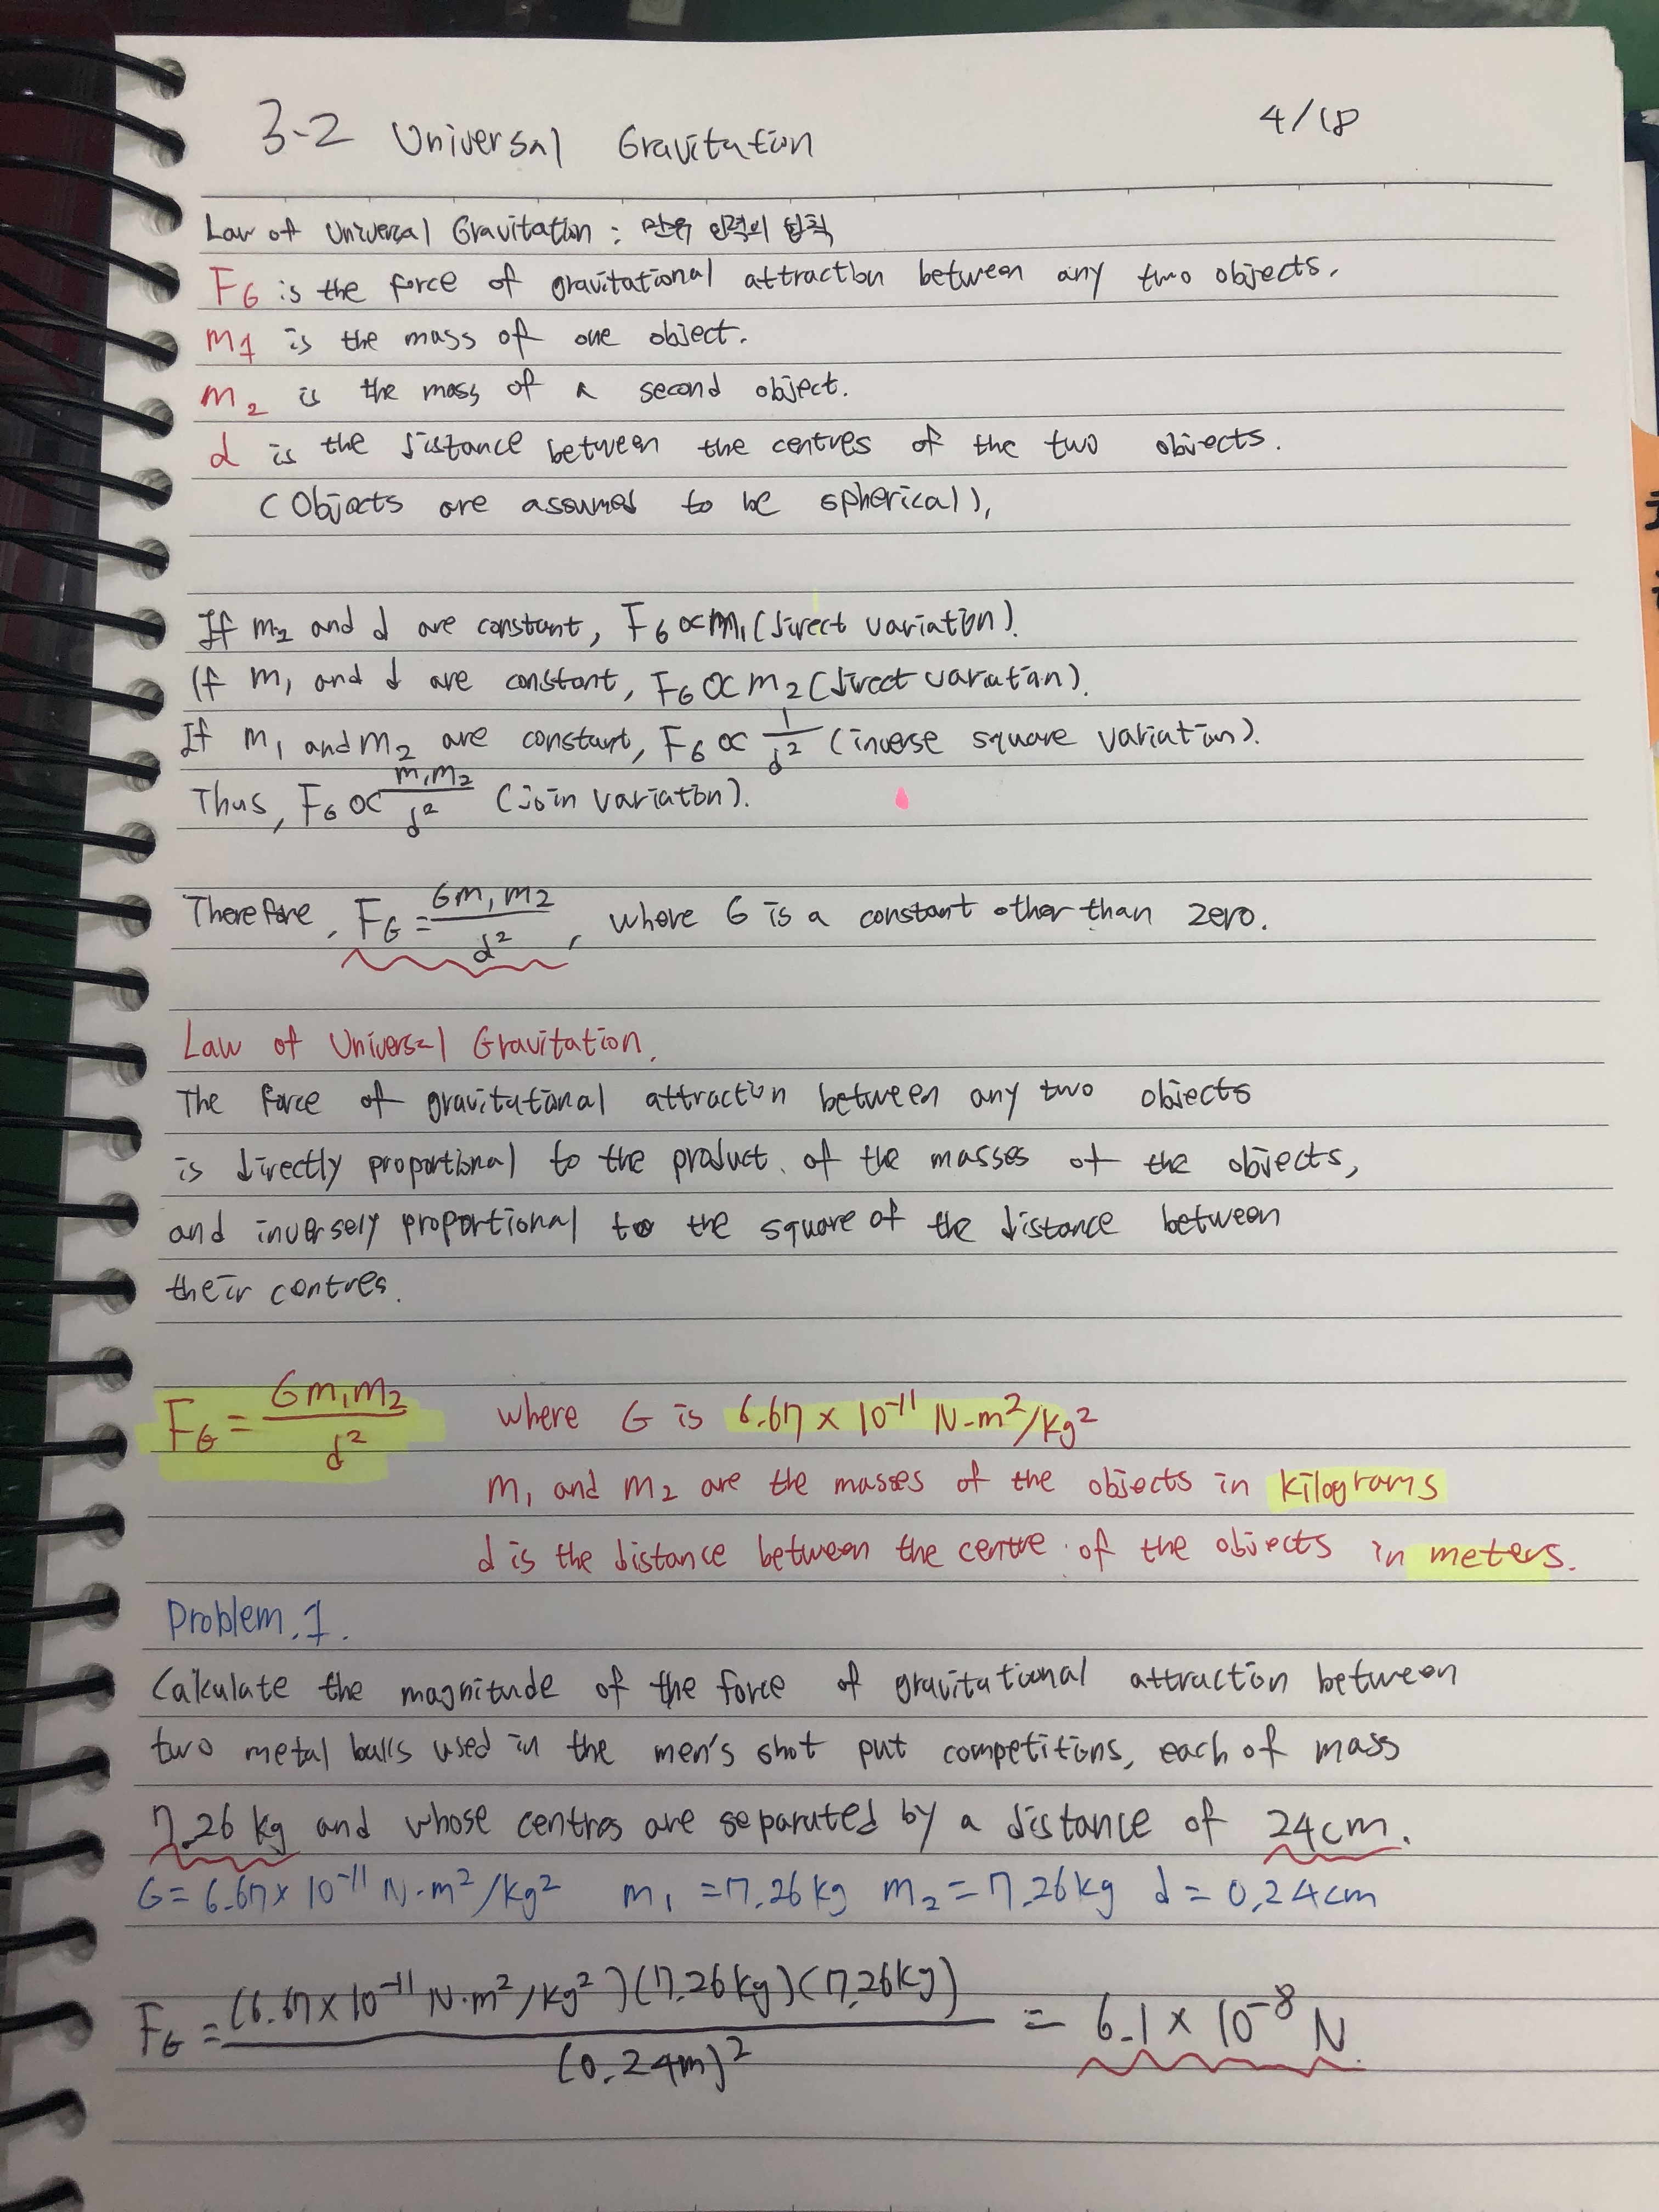 3-2 Universal Gravitation
4/18
Law of Universal Gravitation : 만유 인력의 법칙
FG is the force of gravitational attraction between any two objects.
m1 is the mass of one object.
m2 is the mass of a second object.
d is the distance between the centres of the two objects.
(Objects are assumed to be spherical).
If m2 and d are constant, FG ∝ m1 (direct variation).
If m1 and d are constant, FG ∝ m2 (direct variation).
If m1 and m2 are constant, FG ∝ 1/d² (inverse square variation).
Thus, FG ∝ m1m2/d² (join variation).
Therefore, FG = Gm1m2/d², where G is a constant other than zero.
Law of Universal Gravitation.
The force of gravitational attraction between any two objects
is directly proportional to the product of the masses of the objects,
and inversely proportional to the square of the distance between
their centres.
FG = Gm1m2/d² where G is 6.67 × 10⁻¹¹ N-m²/kg²
m1 and m2 are the masses of the objects in kilograms
d is the distance between the centre of the objects in meters.
Problem.1.
Calculate the magnitude of the force of gravitational attraction between
two metal balls used in the men's shot put competitions, each of mass
7.26 kg and whose centres are separated by a distance of 24cm.
G = 6.67 × 10⁻¹¹ N·m²/kg² m1 = 7.26 kg m2 = 7.26 kg d = 0.24 cm
FG = (6.67 × 10⁻¹¹ N·m²/kg²)(7.26kg)(7.26kg)/(0.24m)² = 6.1 × 10⁻⁸ N.